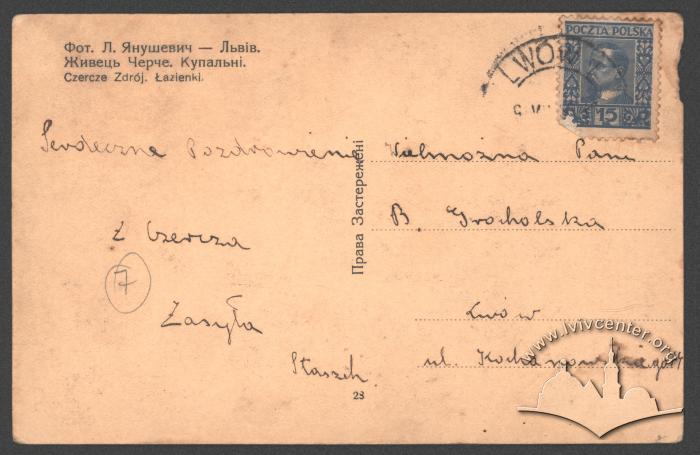 Фот. Л. Янушевич — Львів.
Живець Черче. Купальні.
Czercze Zdrój. Łazienki.
POCZTA POLSKA
15
LWÓW
Serdeczne Pozdrowienie
z Czercza
Zasyła
Staszek
7
Права Застережені
23
Wielmożna Pani
B. Grocholska
Lwów
ul.
www.lvivcenter.org